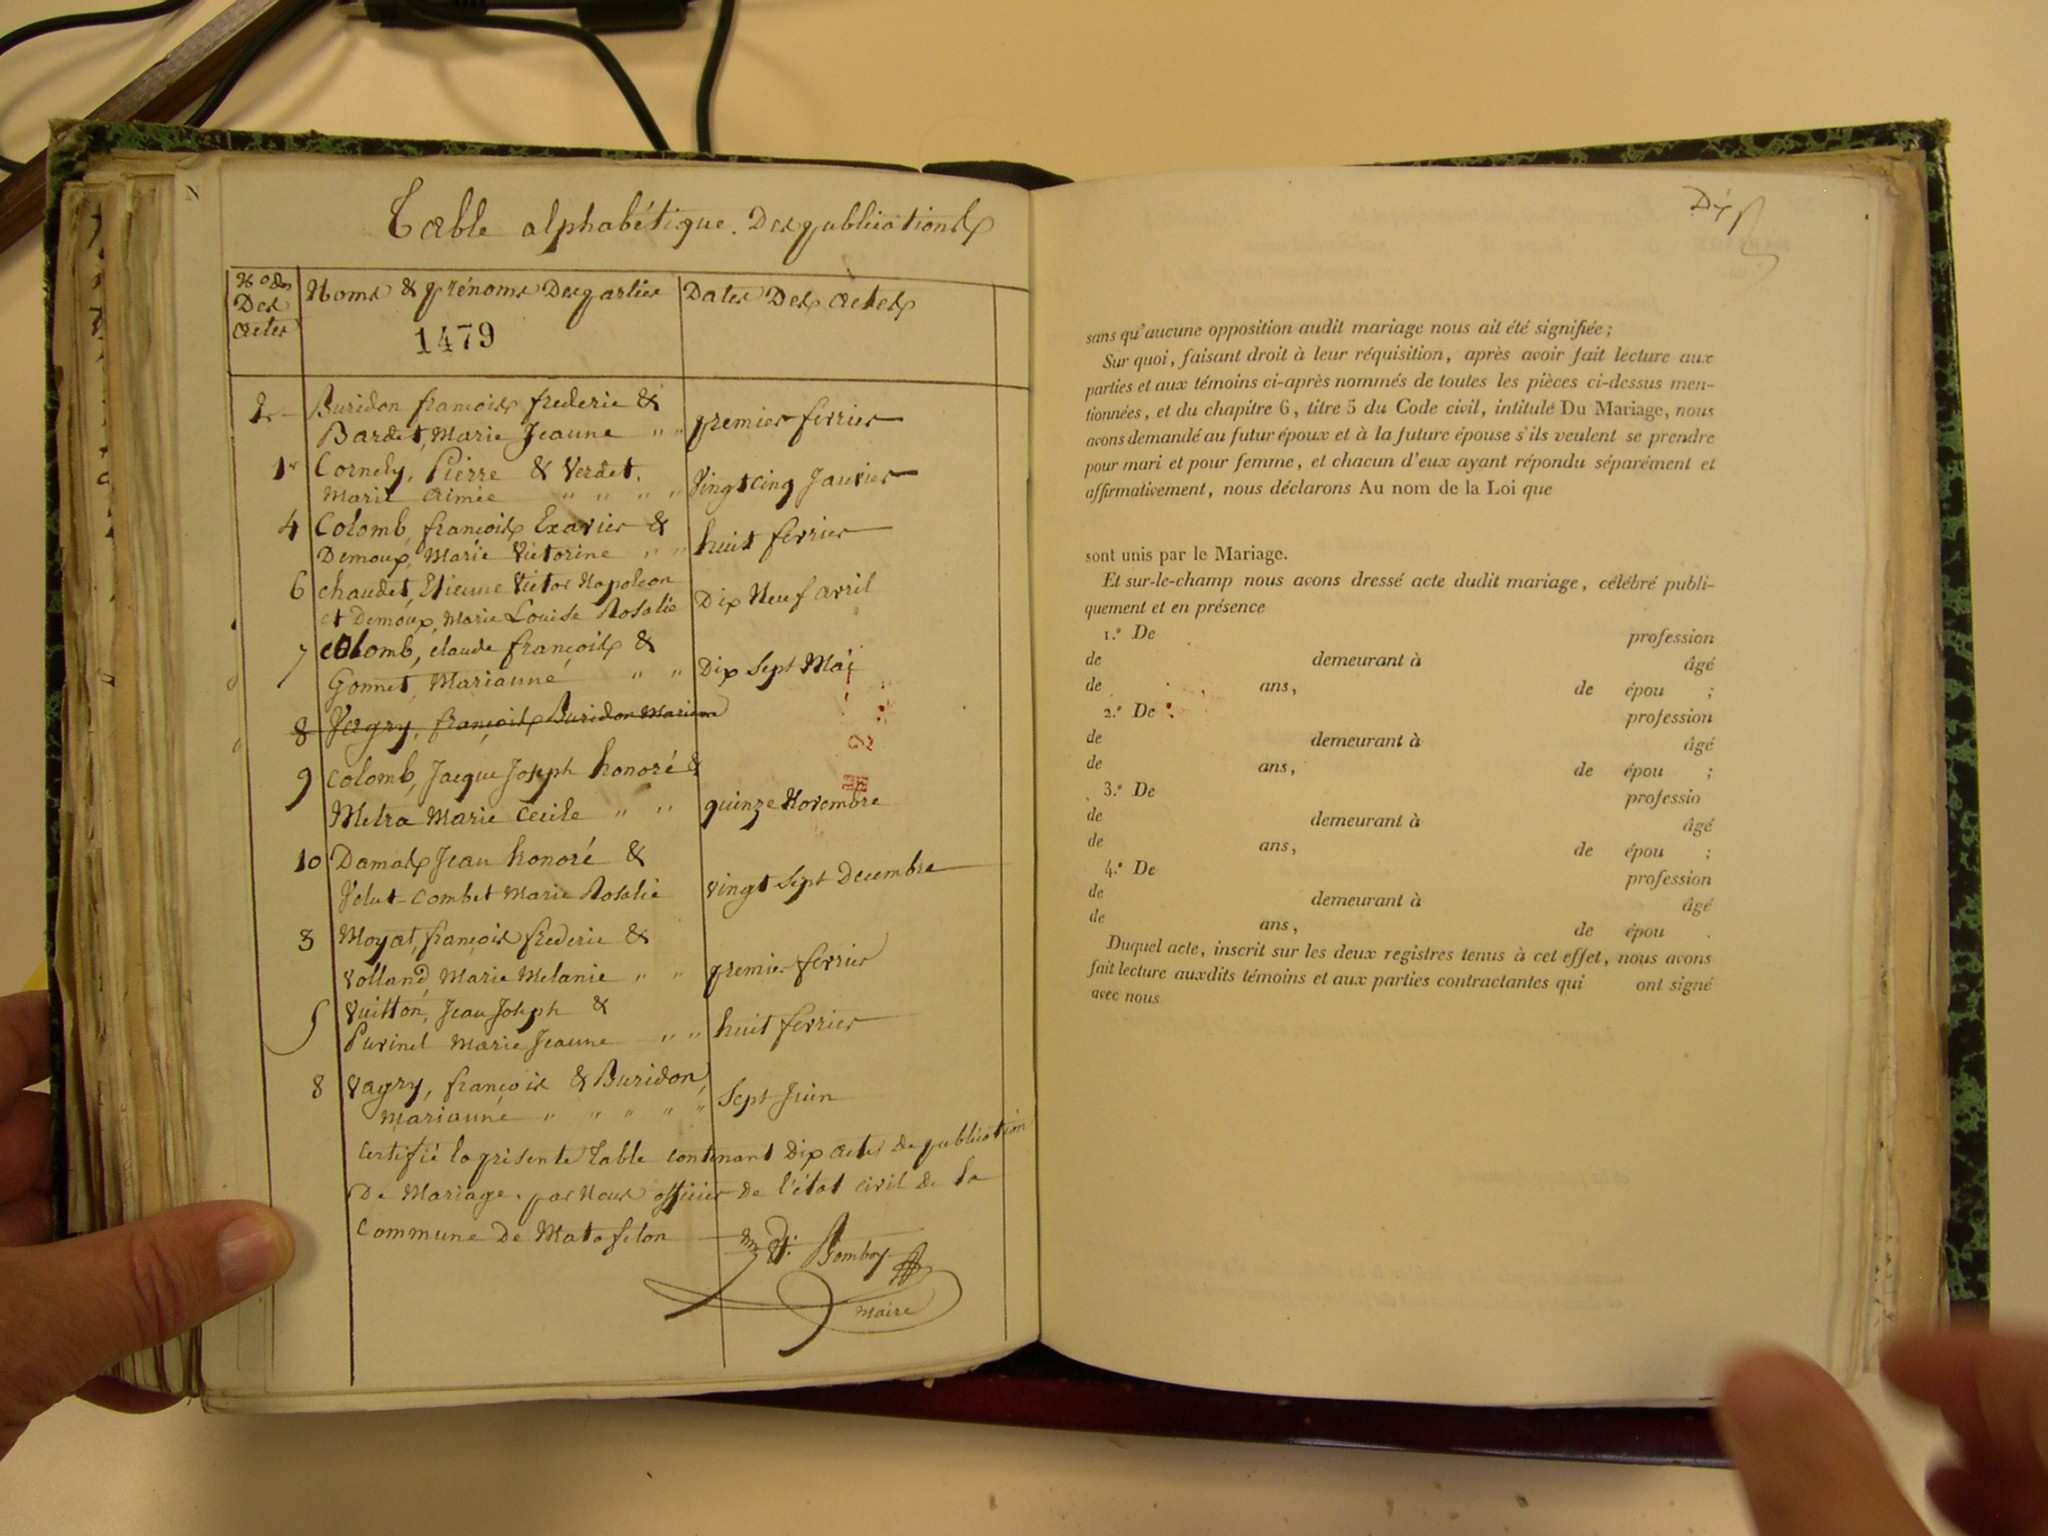 Table alphabétique. Des publications
Nos Des actes
Noms & prénoms Des parties
Dates Des actes
1479
2 Buridon françois frederic &
Bardet, Marie Jeanne " " premier fevrier
1er Cornely, Pierre & Verdet,
Marie Aimée " " " " Vingt cinq Janvier
4 Colomb, françois Exavier &
Demoux, Marie Victorine " " huit fevrier
6 chaudet, Etienne Victor Napoleon
et Demoux, Marie Louise Rosalie Dix Neuf avril
7 colomb, claude françois &
Gonnet, Marianne " " Dix Sept Mai
8 Vagry, françois Buridon Marianne
9 colomb, Jacque Joseph honoré &
Metra Marie Cecile " " quinze Novembre
10 Damas Jean honoré &
Velut-Combet Marie Rosalie vingt Sept Decembre
3 Moyat, françois frederic &
Volland, Marie Melanie " " premier fevrier
5 Vuitton, Jean Joseph &
Marie Jeanne " " huit fevrier
8 Vagry, françois & Buridon,
Marianne " " " " " Sept Juin
Certifié la présente Table contenant Dix actes de publication
De Mariage. par Nous officier de l'état civil de la
Commune De Matafelon
Bomboy
Maire
sans qu'aucune opposition audit mariage nous ait été signifiée ;
Sur quoi, faisant droit à leur réquisition, après avoir fait lecture aux
parties et aux témoins ci-après nommés de toutes les pièces ci-dessus men-
tionnées, et du chapitre 6, titre 5 du Code civil, intitulé Du Mariage, nous
avons demandé au futur époux et à la future épouse s'ils veulent se prendre
pour mari et pour femme, et chacun d'eux ayant répondu séparément et
affirmativement, nous déclarons Au nom de la Loi que
sont unis par le Mariage.
Et sur-le-champ nous avons dressé acte dudit mariage, célébré publi-
quement et en présence
1.º De profession
de demeurant à âgé
de ans, de épou ;
2.º De profession
de demeurant à âgé
de ans, de épou ;
3.º De professio
de demeurant à âgé
de ans, de épou ;
4.º De profession
de demeurant à âgé
de ans, de épou .
Duquel acte, inscrit sur les deux registres tenus à cet effet, nous avons
fait lecture auxdits témoins et aux parties contractantes qui ont signé
avec nous